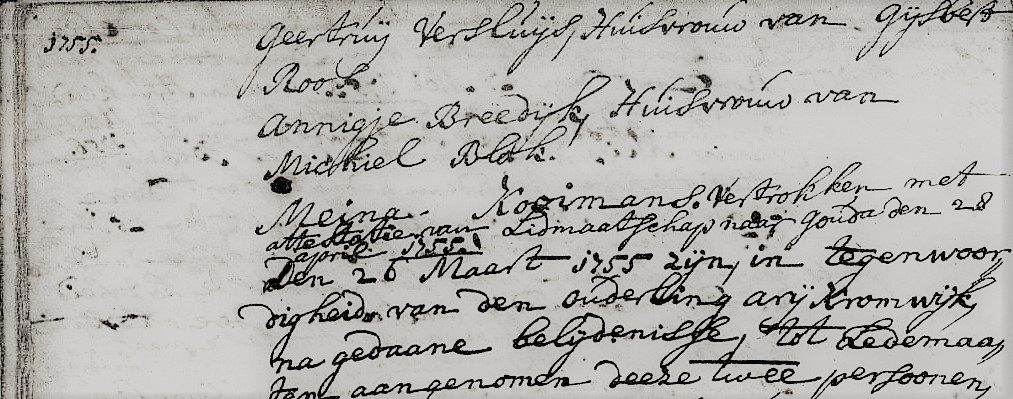 1755. Geertruij Versluijs, Huisvrouw van Gijsbert
Roos.
Annigje Breedijk, Huisvrouw van
Michiel Blok.
Meina Kooimans. Vertrokken met
attestatie van Lidmaatschap naar Gouda den 28
april 1755.
Den 26 Maart 1755 zijn, in tegenwoor,
digheid, van den ouderling arij Kromwijk,
na gedaane belijdenisse, tot Ledemaa,
ten aangenomen deeze twee persoonen,